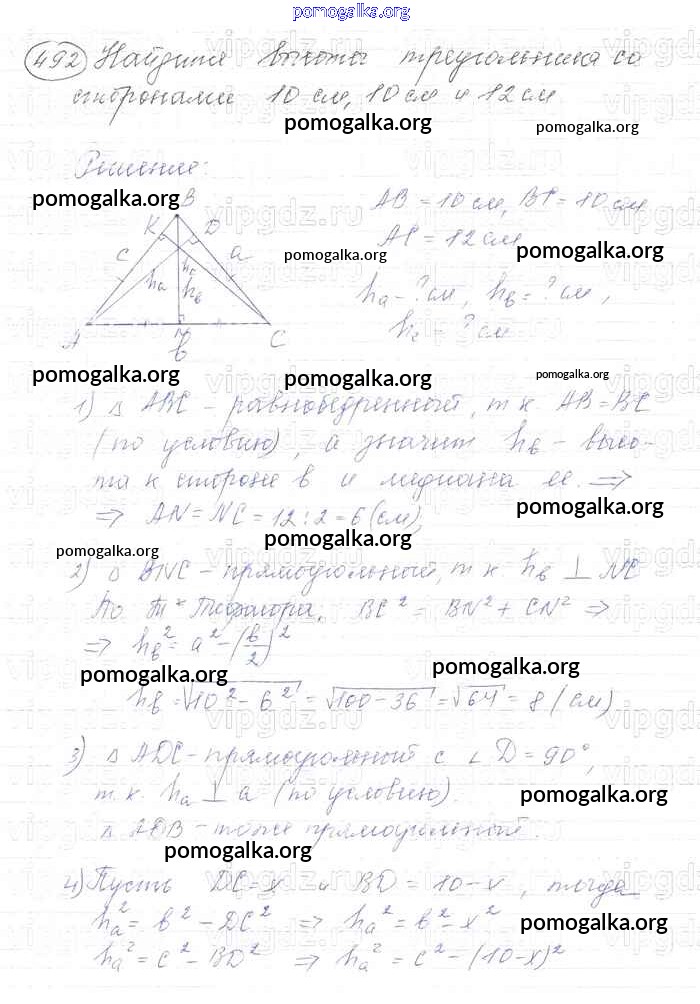 pomogalka.org
492 Найдите высоты треугольника со
сторонами 10 см, 10 см и 12 см
pomogalka.org pomogalka.org
Решение:
pomogalka.org
AB = 10 см, BC = 10 см
AC = 12 см
pomogalka.org pomogalka.org
hₐ - ? см, h_b = ? см,
h_c - ? см
B
K D
c a
hₐ h_c h_b
A N C
b
pomogalka.org pomogalka.org pomogalka.org
1) Δ ABC - равнобедренный, т.к. AB = BC
(по условию), а значит h_b - высо-
та к стороне b и медиана ее. ⇒
⇒ AN = NC = 12 : 2 = 6 (см),
pomogalka.org
pomogalka.org pomogalka.org
2) Δ BNC - прямоугольный, т.к. h_b ⊥ NC
По т. Пифагора: BC² = BN² + CN² ⇒
⇒ h_b² = a² - (b/2)²
pomogalka.org pomogalka.org
h_b = √10² - 6² = √100 - 36 = √64 = 8 (см)
3) Δ ADC - прямоугольный с ∠D = 90°,
т.к. hₐ ⊥ a (по условию).
pomogalka.org
Δ ADB - тоже прямоугольный.
pomogalka.org
4) Пусть DC = x и BD = 10 - x, тогда
hₐ² = b² - DC² ⇒ hₐ² = b² - x²
pomogalka.org
hₐ² = c² - BD² ⇒ hₐ² = c² - (10 - x)²